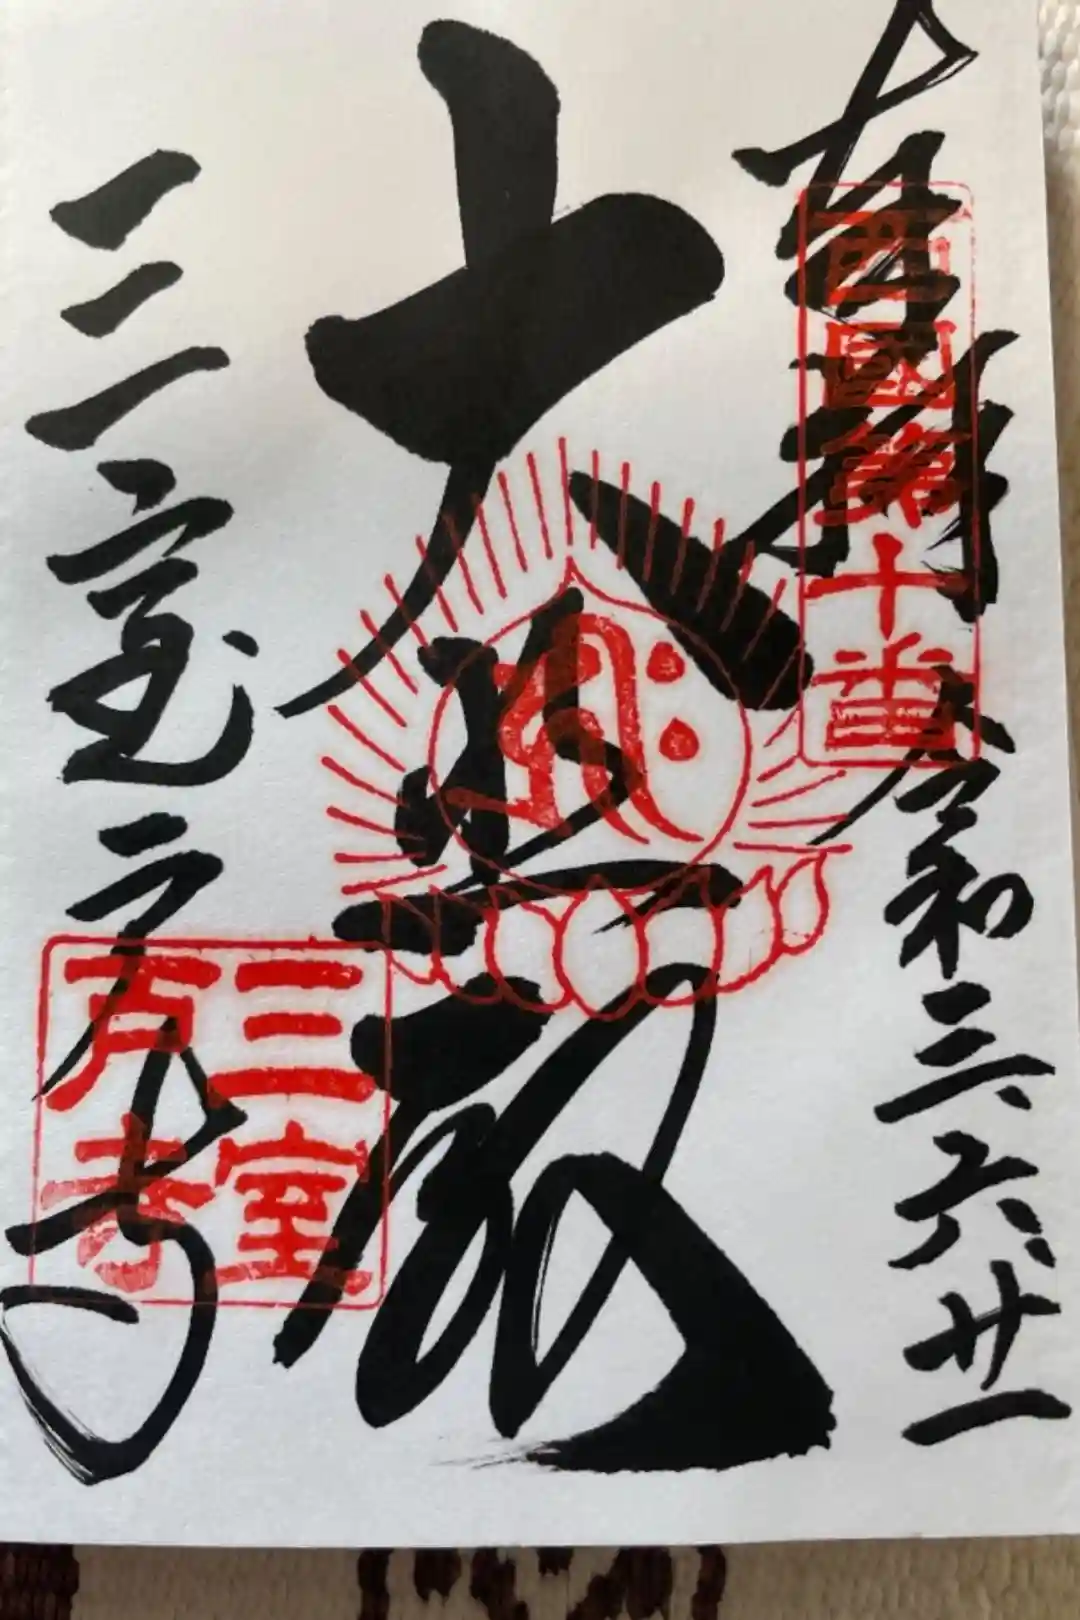 奉拝
西國第十番
令和三、六、廿一
大悲殿
三室戸寺
三室戸寺